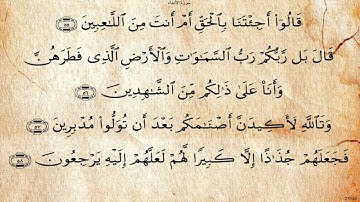 سورة الأنبياء
قَالُوٓاْ أَجِئْتَنَا بِٱلْحَقِّ أَمْ أَنتَ مِنَ ٱللَّٰعِبِينَ ٥٥
قَالَ بَل رَّبُّكُمْ رَبُّ ٱلسَّمَٰوَٰتِ وَٱلْأَرْضِ ٱلَّذِى فَطَرَهُنَّ
وَأَنَا۠ عَلَىٰ ذَٰلِكُم مِّنَ ٱلشَّٰهِدِينَ ٥٦
وَتَٱللَّهِ لَأَكِيدَنَّ أَصْنَٰمَكُم بَعْدَ أَن تُوَلُّواْ مُدْبِرِينَ ٥٧
فَجَعَلَهُمْ جُذَٰذًا إِلَّا كَبِيرًا لَّهُمْ لَعَلَّهُمْ إِلَيْهِ يَرْجِعُونَ ٥٨